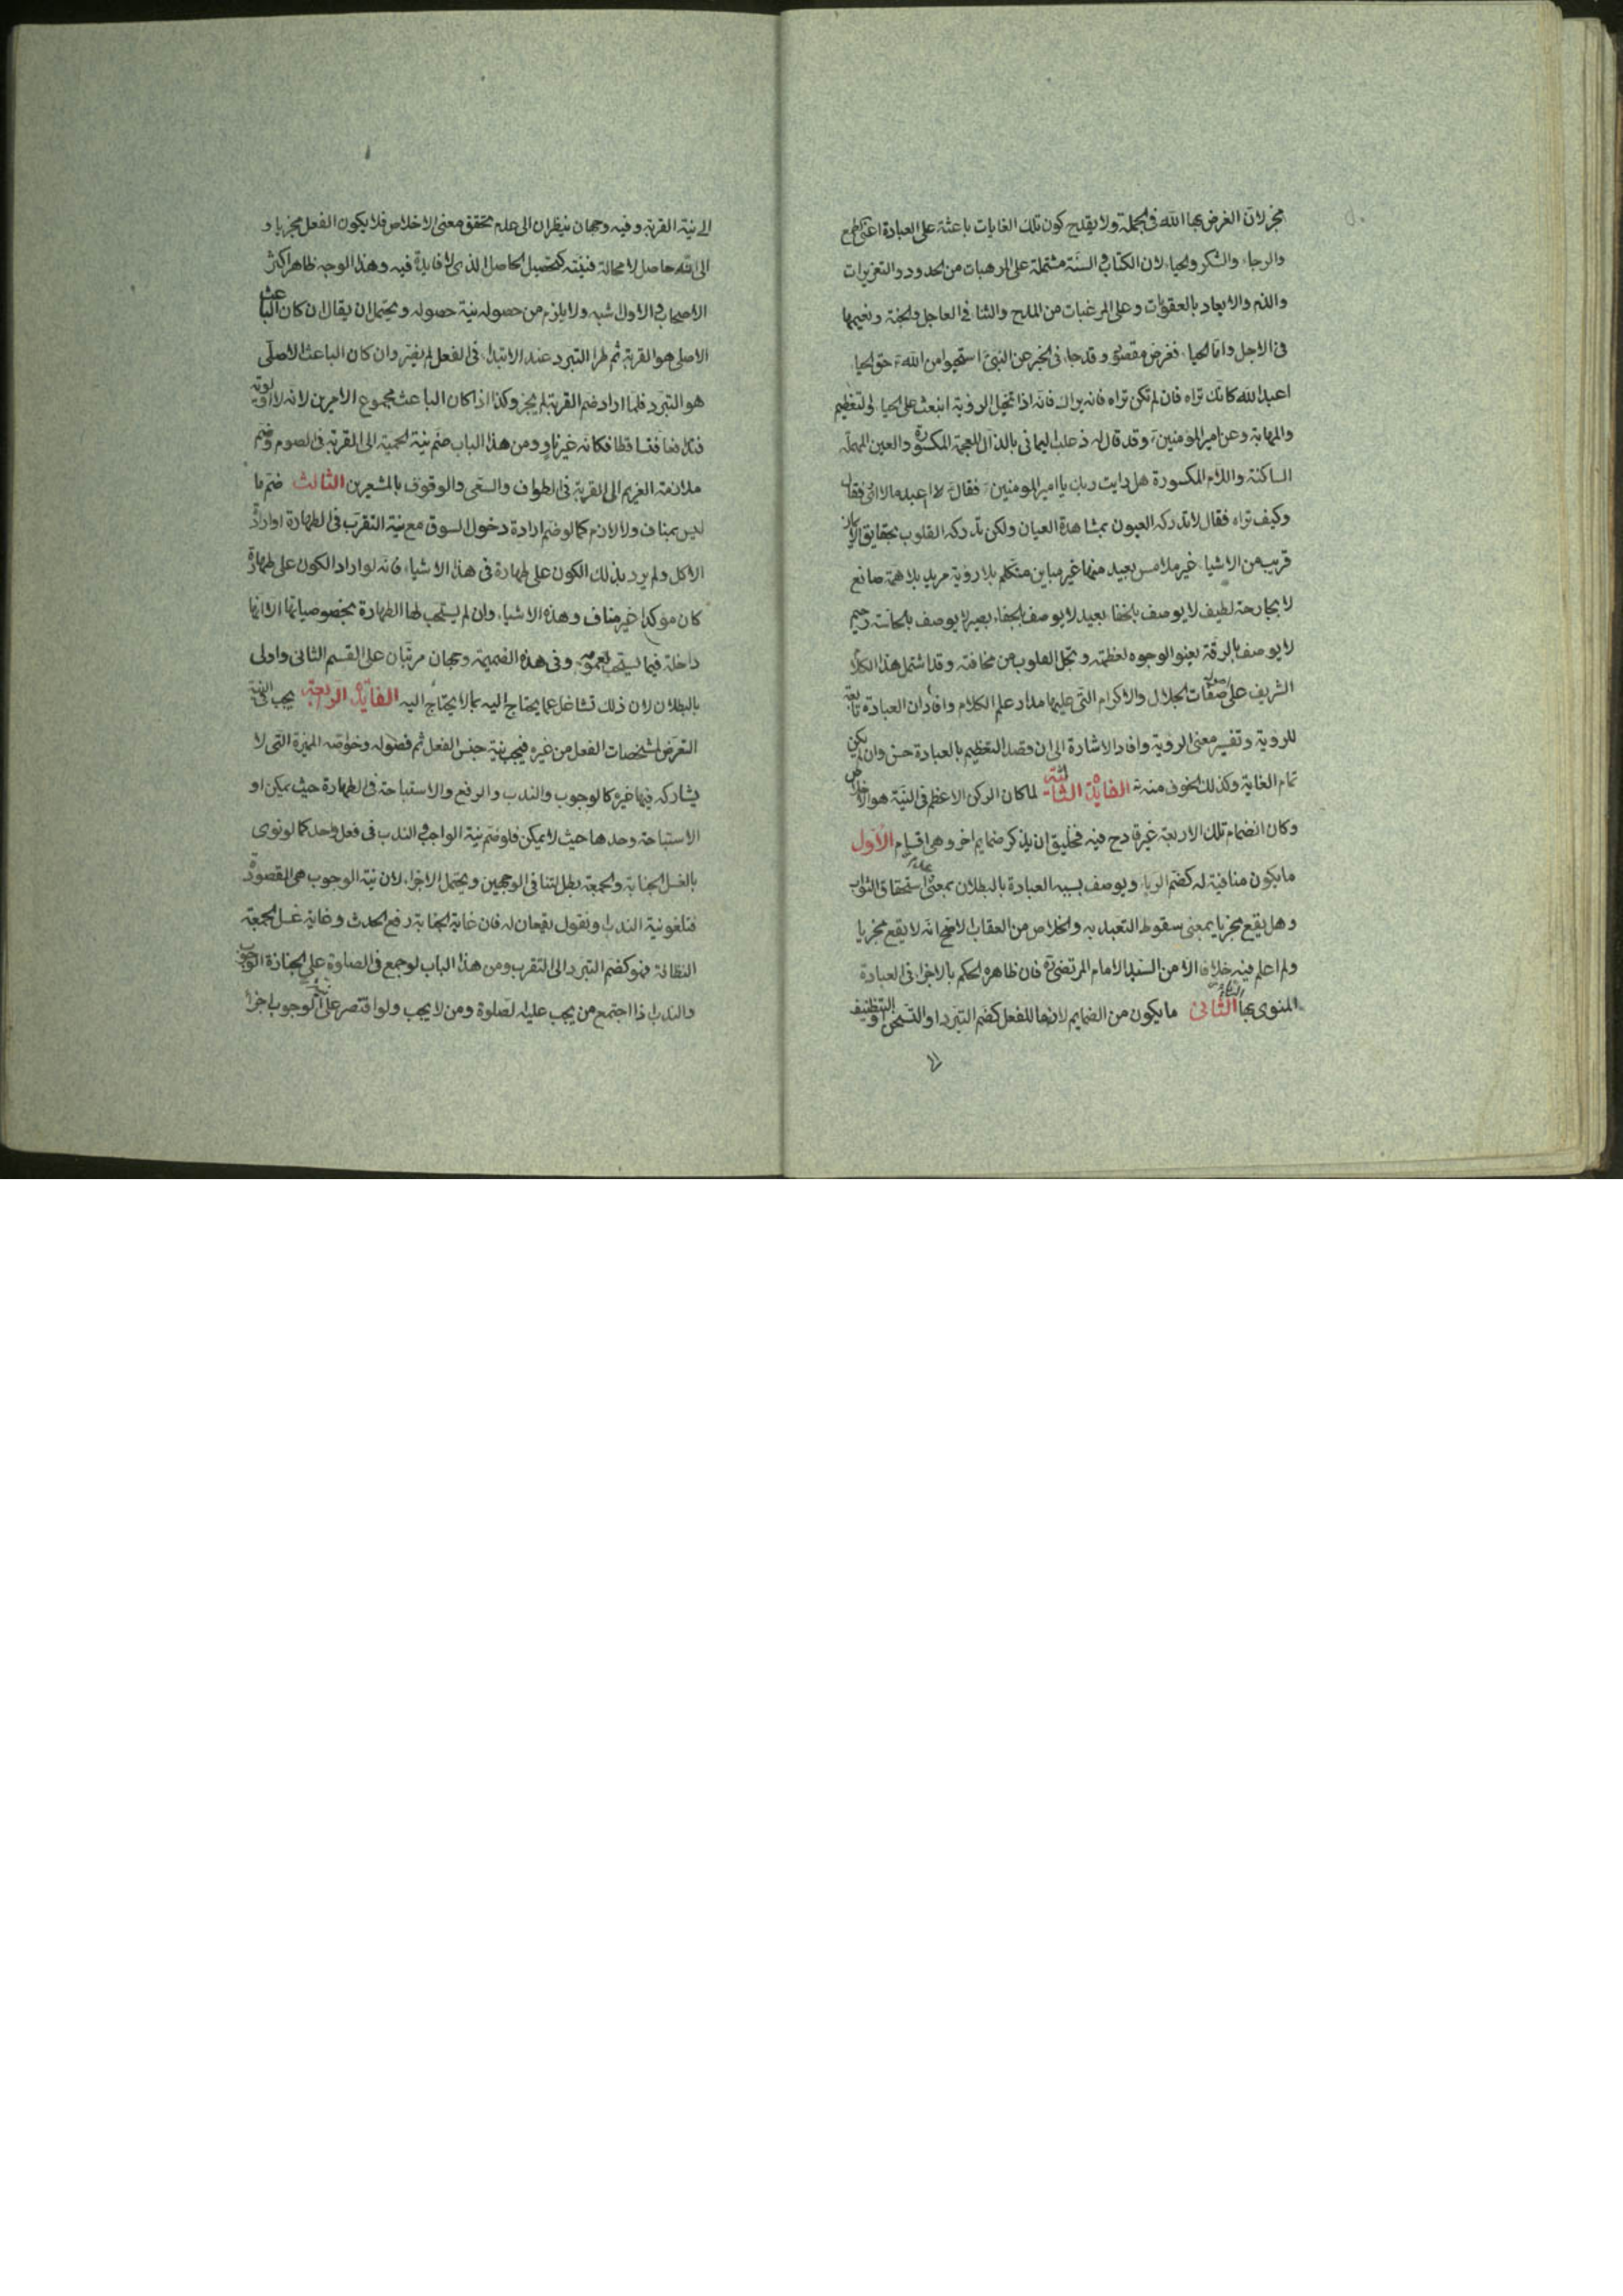 مجز لان الغرض بها الله فى الجملة ولا يقدح كون تلك الغايات باعثة على العبادة اعنى الطمع
والرجاء والشكر والحياء لان الكتاب والسنة مشتملة على المرهبات من الحدود والتعزيرات
والذم والايعاد بالعقوبات وعلى المرغبات من المدح والثنا فى العاجل والجنة ونعيمها
فى الاجل واما الحياء فغرض مقصود وقد جاء فى الخبر عن النبى استحيوا من الله حق الحياء
اعبد الله كانك تراه فان لم تكن تراه فانه يراك فانه اذا تخيل الروية انبعث على الحياء والتعظيم
والمهابة وعن امير المومنين وقد قال له ذعلب اليمانى بالذال المعجمة المكسورة والعين المهملة
الساكنة واللام المكسورة هل رايت ربك يا امير المومنين فقال افاعبد ما لا ارى فقال
وكيف تراه فقال لا تدركه العيون بمشاهدة العيان ولكن تدركه القلوب بحقايق الايمان
قريب من الاشياء غير ملامس بعيد منها غير مباين متكلم بلا روية مريد بلا همة صانع
لا بجارحة لطيف لا يوصف بالخفاء بعيد لا يوصف بالجفاء بصير لا يوصف بالحاسة رحيم
لا يوصف بالرقة تعنو الوجوه لعظمته وتجل القلوب من مخافته وقد اشتمل هذا الكلام
الشريف على صفات الجلال والاكرام التى عليها مدار علم الكلام وافاد ان العبادة تابعة
للروية وتفسير معنى الروية وافاد الاشارة الى ان قصد التعظيم بالعبادة حسن وان لم يكن
تمام الغاية وكذلك الخوف منه الفايدة الثالثة لما كان الركن الاعظم فى النية هو الاخلاص
وكان انضمام تلك الاربعة غير قادح فيه فخليق ان يذكر ضمايم اخر وهى اقسام الاول
ما يكون منافية له كضم الرياء ويوصف بسببه العبادة بالبطلان بمعنى عدم استحقاق الثواب
وهل يقع مجزيا بمعنى سقوط التعبد به والخلاص من العقاب الاصح انه لا يقع مجزيا
ولم اعلم فيه خلافا الا من السيد الامام المرتضى فان ظاهره الحكم بالاجزاء فى العبادة
المنوى بها الرياء الثانى ما يكون من الضمايم لازما للفعل كضم التبرد او التسخن والتنظيف
الى نية القربة وفيه وجهان ينظران الى عدم تحقق معنى الاخلاص فلا يكون الفعل مجزيا و
الى انه حاصل لا محالة فنيته كتحصيل الحاصل الذى لا فايدة فيه وهذا الوجه ظاهر اكثر
الاصحاب والاول اشبه ولا يلزم من حصوله نية حصوله ويحتمل ان يقال ان كان الباعث
الاصلى هو القربة ثم طرا التبرد عند الابتداء فى الفعل لم يضر وان كان الباعث الاصلى
هو التبرد فلما اراد ضم القربة لم يجز وكذا اذا كان الباعث مجموع الامرين لانه لا اولوية
فتدافعا فتساقطا فكانه غير ناو ومن هذا الباب ضم نية الحمية الى القربة فى الصوم وضم
ملازمة الغريم الى القربة فى الطواف والسعى والوقوف بالمشعرين الثالث ضم ما
ليس بمناف ولا لازم كما لو ضم ارادة دخول السوق مع نية التقرب فى الطهارة او ارادة
الاكل ولم يرد بذلك الكون على طهارة فى هذه الاشياء فانه لو اراد الكون على طهارة
كان موكدا غير مناف وهذه الاشياء وان لم يستحب لها الطهارة بخصوصياتها الا انها
داخلة فيما يستحب بعمومه وفى هذه الضميمة وجهان مرتبان على القسم الثانى واولى
بالبطلان لان ذلك تشاغل عما يحتاج اليه بما لا يحتاج اليه الفايدة الرابعة يجب فى النية
التعرض لمشخصات الفعل من غيره فيجب نية جنس الفعل ثم فصوله وخواصه المميزة التى لا
يشاركه فيها غيره كالوجوب والندب والرفع والاستباحة فى الطهارة حيث يمكن او
الاستباحة وحدها حيث لا يمكن فلو ضم نية الواجب والندب فى فعل واحد كما لو نوى
بالغسل الجنابة والجمعة بطل لتنافى الوجهين ويحتمل الاجزاء لان نية الوجوب هى المقصودة
فتلغو نية الندب او نقول يقعان له فان غاية الجنابة رفع الحدث وغاية غسل الجمعة
النظافة فهو كضم التبرد الى التقرب ومن هذا الباب لو جمع فى الصلوة على الجنازة الوجوب
والندب اذا اجتمع من يجب عليه الصلوة ومن لا يجب ولو اقتصر على نية الوجوب اجزأ